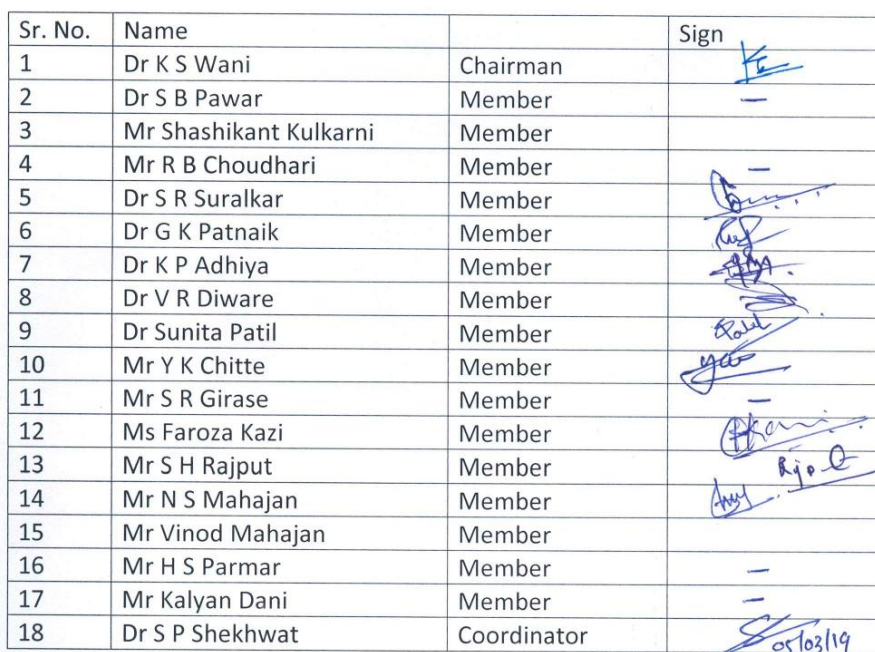 Sr. No. Name Sign
1 Dr K S Wani Chairman
2 Dr S B Pawar Member —
3 Mr Shashikant Kulkarni Member
4 Mr R B Choudhari Member —
5 Dr S R Suralkar Member
6 Dr G K Patnaik Member
7 Dr K P Adhiya Member
8 Dr V R Diware Member
9 Dr Sunita Patil Member
10 Mr Y K Chitte Member
11 Mr S R Girase Member —
12 Ms Faroza Kazi Member
13 Mr S H Rajput Member
14 Mr N S Mahajan Member
15 Mr Vinod Mahajan Member
16 Mr H S Parmar Member —
17 Mr Kalyan Dani Member —
18 Dr S P Shekhwat Coordinator 05/03/19